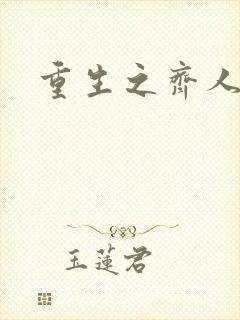 重生之齐人
玉莲君